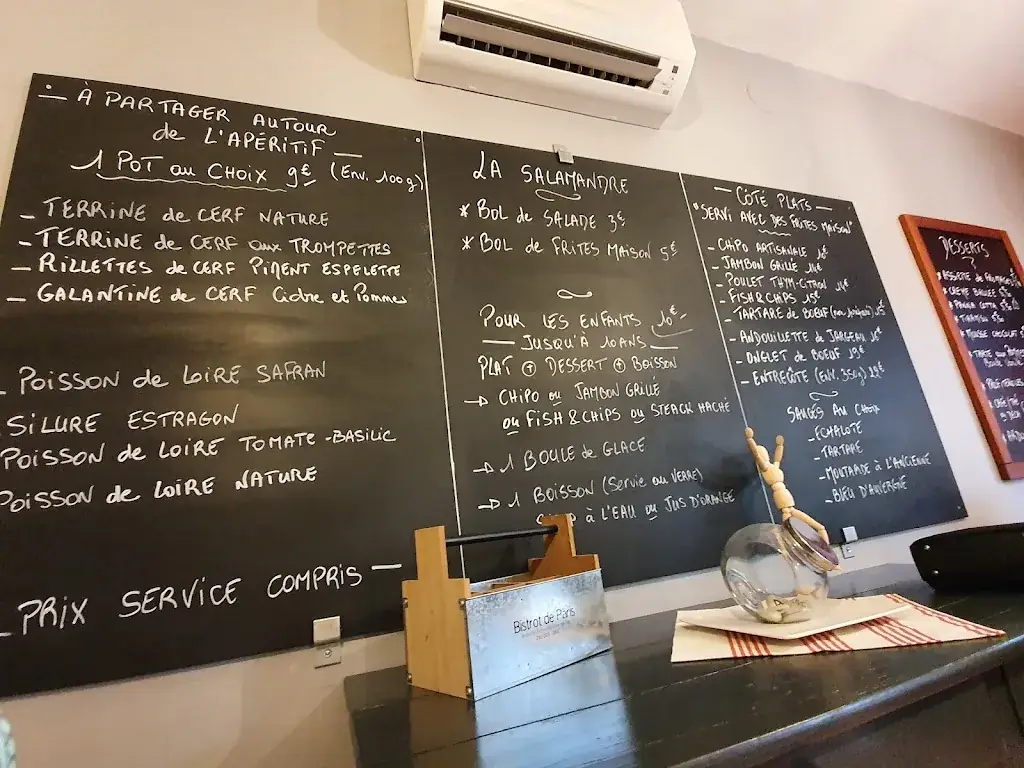 — À PARTAGER AUTOUR
de L'APÉRITIF —
1 POT au CHOIX 9€ (Env. 100g)
- TERRINE de CERF NATURE
- TERRINE de CERF aux TROMPETTES
- RILLETTES de CERF PIMENT ESPELETTE
- GALANTINE de CERF Cidre et Pommes
- POISSON de LOIRE SAFRAN
SILURE ESTRAGON
POISSON de LOIRE TOMATE-BASILIC
POISSON de LOIRE NATURE
- PRIX SERVICE COMPRIS —
LA SALAMANDRE
* BOL de SALADE 3€
* BOL de FRITES MAISON 5€
POUR LES ENFANTS 10€
— JUSQU'À 10 ANS —
PLAT + DESSERT + BOISSON
→ CHIPO ou JAMBON GRILLÉ
ou FISH & CHIPS ou STEACK HACHÉ
→ 1 BOULE de GLACE
→ 1 BOISSON (Servie au VERRE)
à L'EAU ou JUS D'ORANGE
— CÔTÉ PLATS —
"SERVI AVEC DES FRITES MAISON"
- CHIPO ARTISANALE
- JAMBON GRILLÉ 14€
- POULET THYM-CITRON 14€
- FISH & CHIPS 15€
- TARTARE de BOEUF
- ANDOUILLETTE de JARGEAU
- ONGLET de BOEUF
- ENTRECÔTE (ENV. 350g)
SAUCES AU CHOIX
- ECHALOTE
- TARTARE
- MOUTARDE à L'ANCIENNE
- BLEU D'AUVERGNE
DESSERTS
* ASSIETTE de FROMAGES
* CRÈME BRULÉE
* PANNA COTTA
* TIRAMISU
* MOUSSE CHOCOLAT
* TARTE aux
Bistrot de Paris